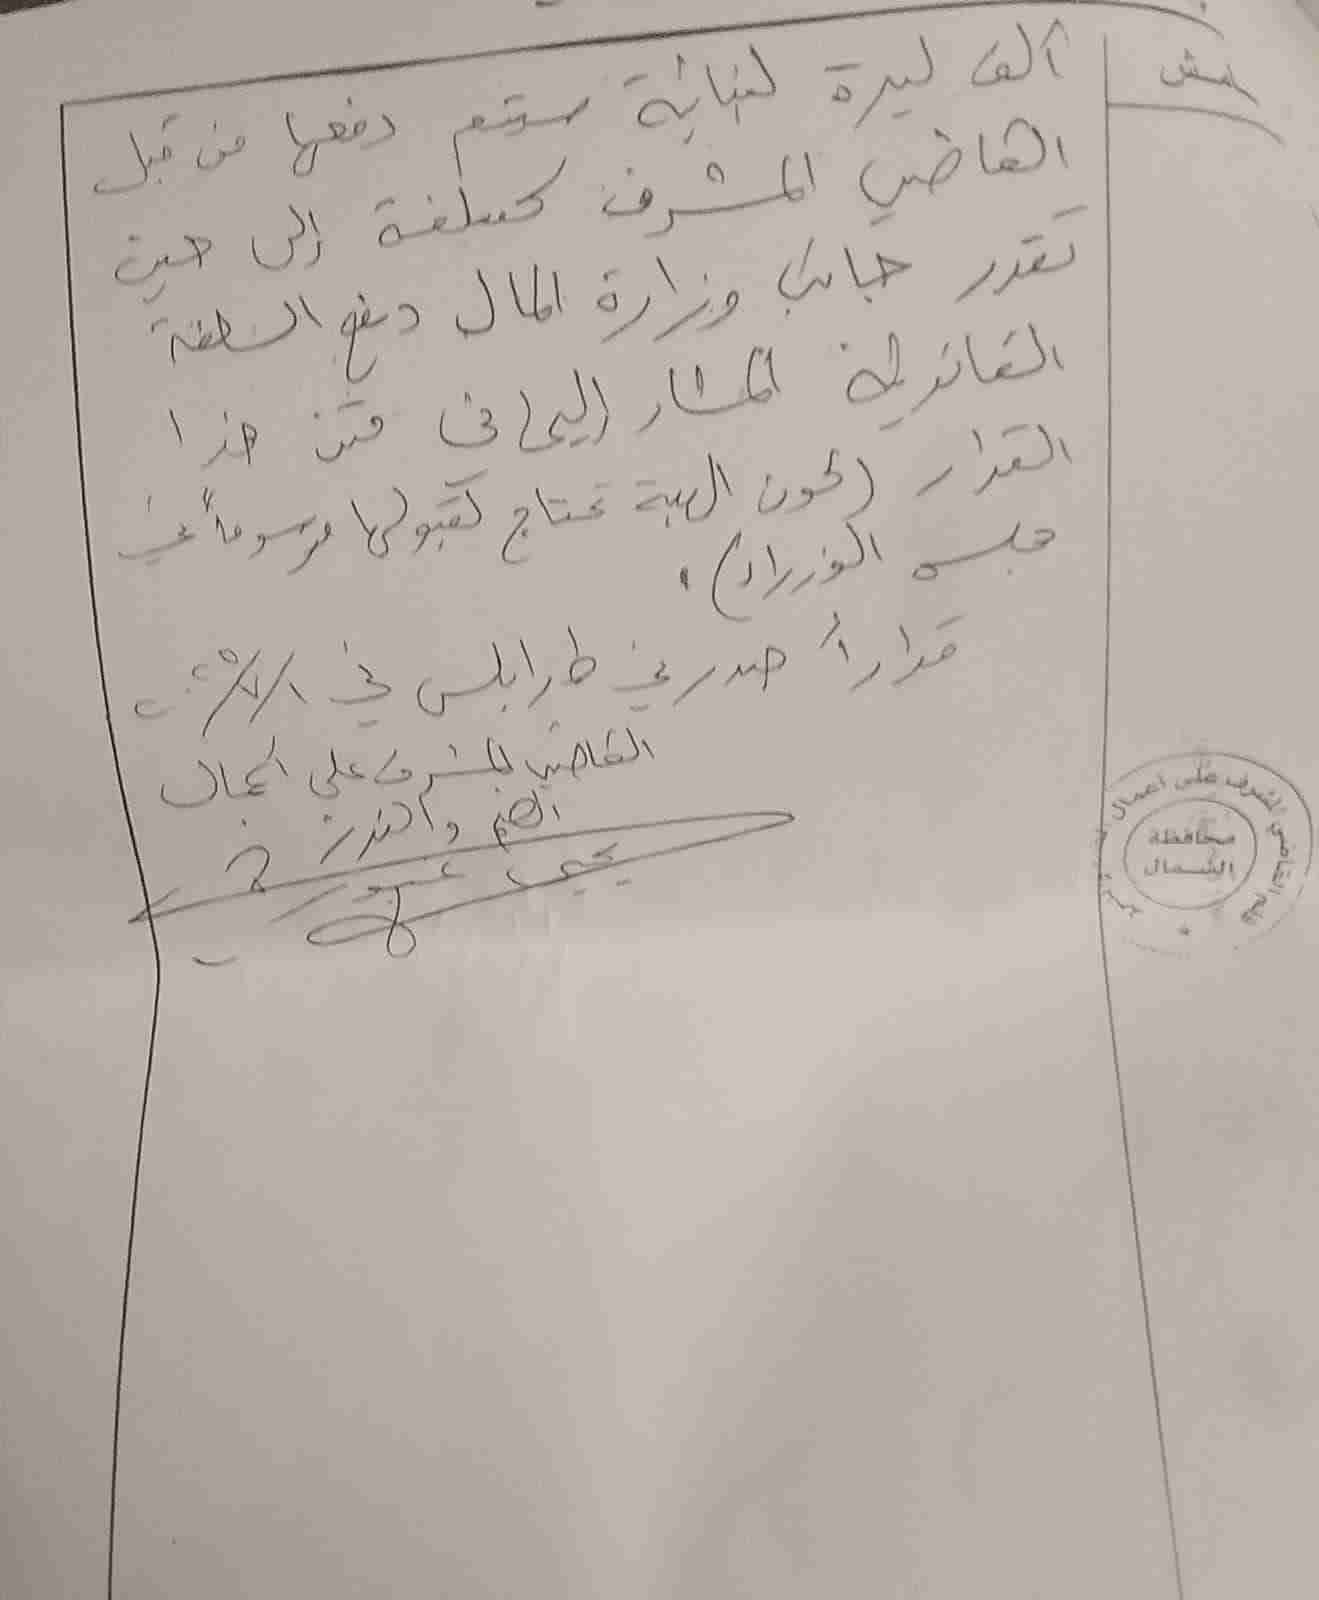 هامش
ألف ليرة لبنانية سيتم دفعها من قبل
القاضي المشرف كسلفة إلى حين
تقدر جانب وزارة المال دفع السلفة
القانونية المشار إليها في متن هذا
القرار (كون الهبة تحتاج لقبولها مرسوماً في
مجلس الوزراء).
قراراً صدر في طرابلس في
القاضي المشرف على أعمال
الضم والفرز في
يحيى
قلم القاضي المشرف على أعمال
محافظة
الشمال